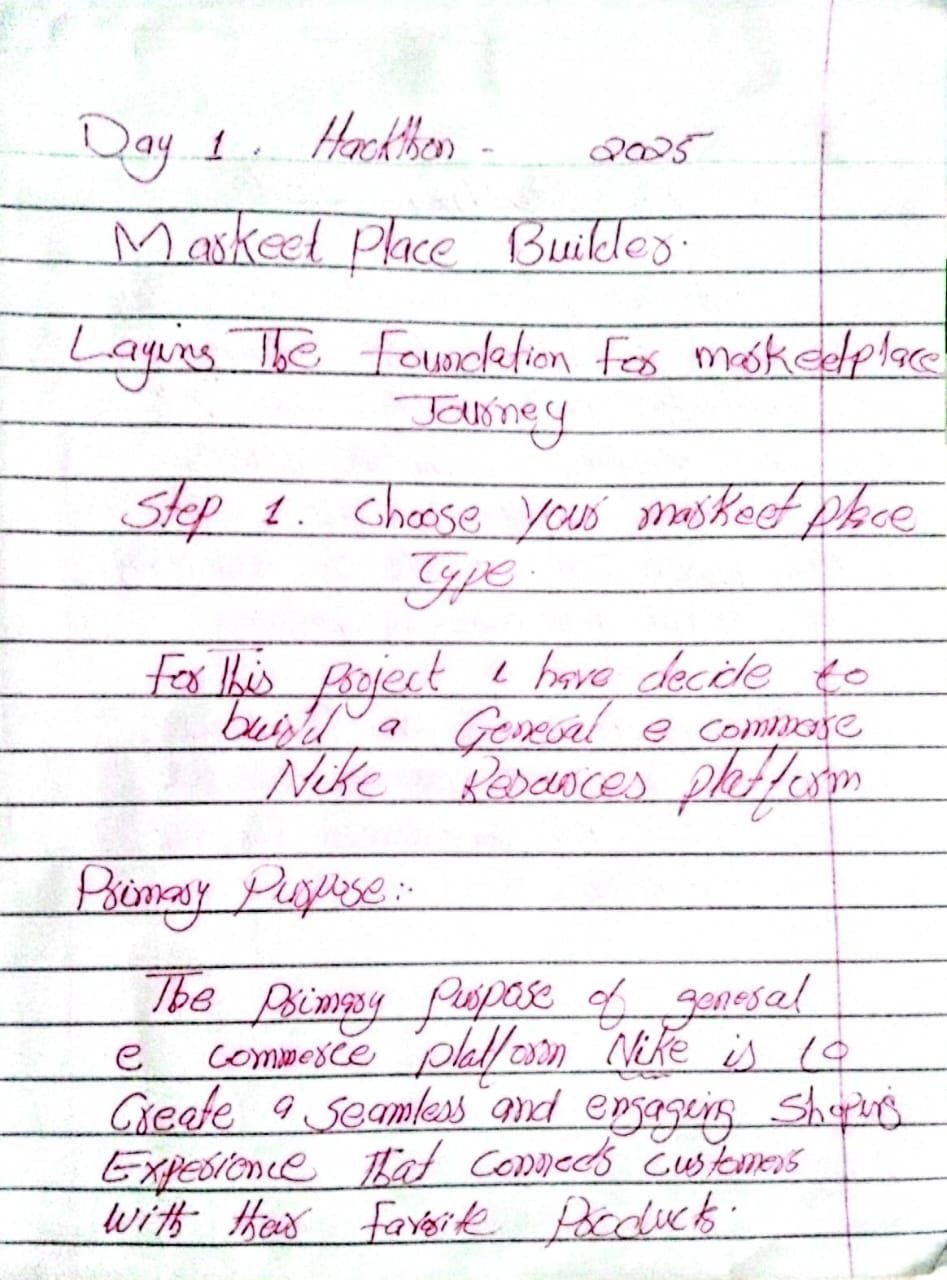 Day 1. Hackthon - 2025
Markeet place Builder.
Laying The Foundation For markeetplace
Journey
Step 1. Choose your markeet place
Type.
For This project i have decide to
build a General e commerse
Nike Resources platform
Primary Purpose:-
The primary purpose of general
e commerce platform Nike is to
Create a seamless and engaging shoping
Experience That connects customers
with their favorite Products.